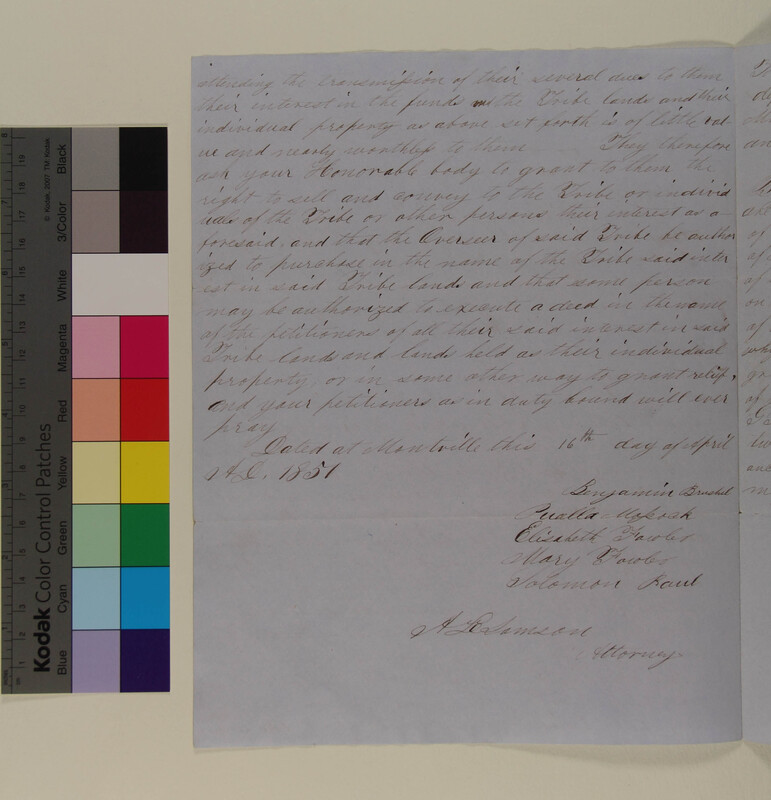 attending the transmission of their several dues to them
their interest in the funds the Tribe lands and their
individual property as above set forth is of little val-
ue and nearly worthless to them They therefore
ask your Honorable body to grant to them the
right to sell and convey to the Tribe or individ
uals of the Tribe or other persons their interest as a-
foresaid, and that the Overseer of said Tribe be author
ized to purchase in the name of the Tribe said inter
est in said Tribe lands and that some person
may be authorized to execute a deed in the name
of the petitioners of all their said interest in said
Tribe lands and lands held as their individual
property, or in some other way to grant relief,
and your petitioners as in duty bound will ever
pray
Dated at Montville this 16th day of April
A.D. 1851
Benjamin Brushel
Elisabeth Fowler
Mary Fowler
Solomon Paul
Samson
Attorney
Kodak Color Control Patches
© Kodak, 2007 TM: Kodak
Blue
Cyan
Green
Yellow
Red
Magenta
White
3/Color
Black